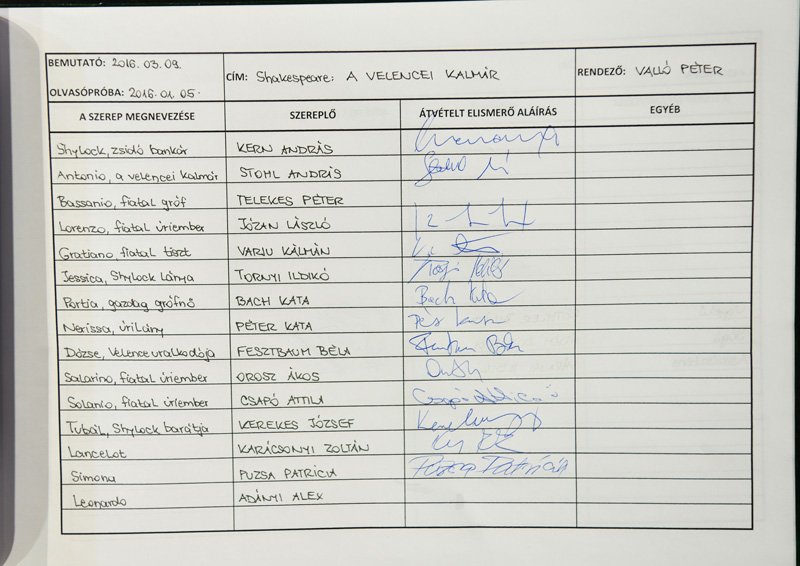 BEMUTATÓ: 2016. 03. 09. CÍM: Shakespeare: A VELENCEI KALMÁR RENDEZŐ: VALLÓ PÉTER
OLVASÓPRÓBA: 2016. 01. 05.
A SZEREP MEGNEVEZÉSE SZEREPLŐ ÁTVÉTELT ELISMERŐ ALÁÍRÁS EGYÉB
Shylock, zsidó bankár KERN ANDRÁS
Antonio, a velencei kalmár STOHL ANDRÁS
Bassanio, fiatal gróf TELEKES PÉTER
Lorenzo, fiatal úriember JÓZAN LÁSZLÓ
Gratiano, fiatal tiszt VARJU KÁLMÁN
Jessica, Shylock lánya TORNYI ILDIKÓ
Portia, gazdag grófnő BACH KATA Bach Kata
Nerissa, úrilány PÉTER KATA
Dózse, Velence uralkodója FESZTBAUM BÉLA
Salarino, fiatal úriember OROSZ ÁKOS
Solanio, fiatal úriember CSAPÓ ATTILA
Tubál, Shylock barátja KEREKES JÓZSEF
Lancelot KARÁCSONYI ZOLTÁN
Simona PUZSA PATRÍCIA Puzsa Patrícia
Leonardo ADÁNYI ALEX